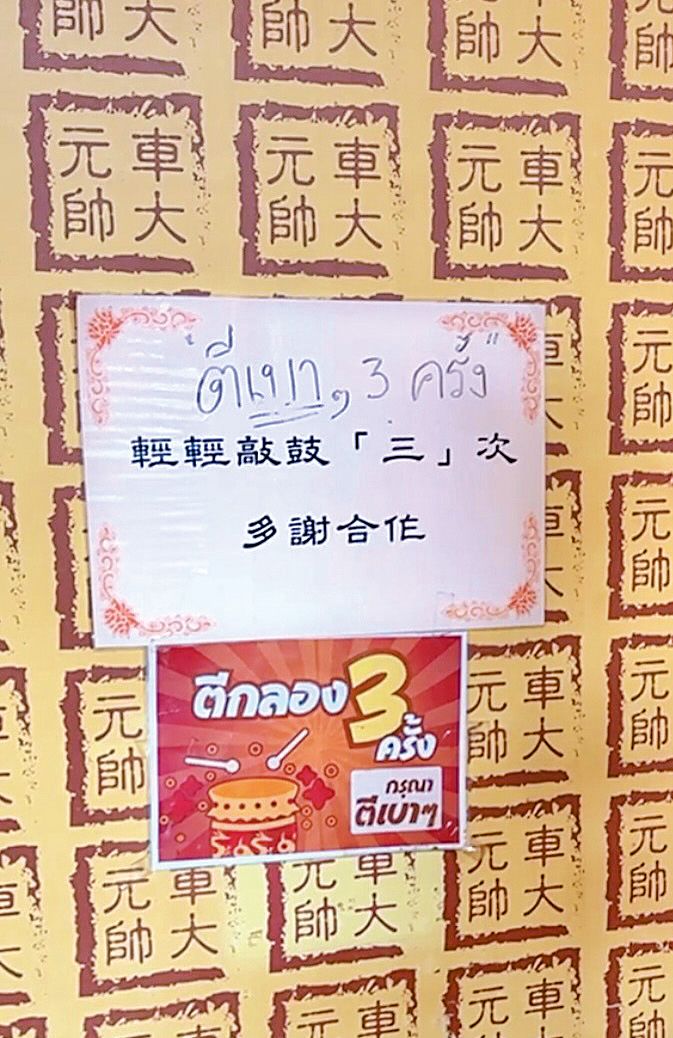 "ตีเบาๆ 3 ครั้ง"
輕輕敲鼓「三」次
多謝合作
ตีกลอง 3 ครั้ง
กรุณา
ตีเบาๆ
車大
元帥